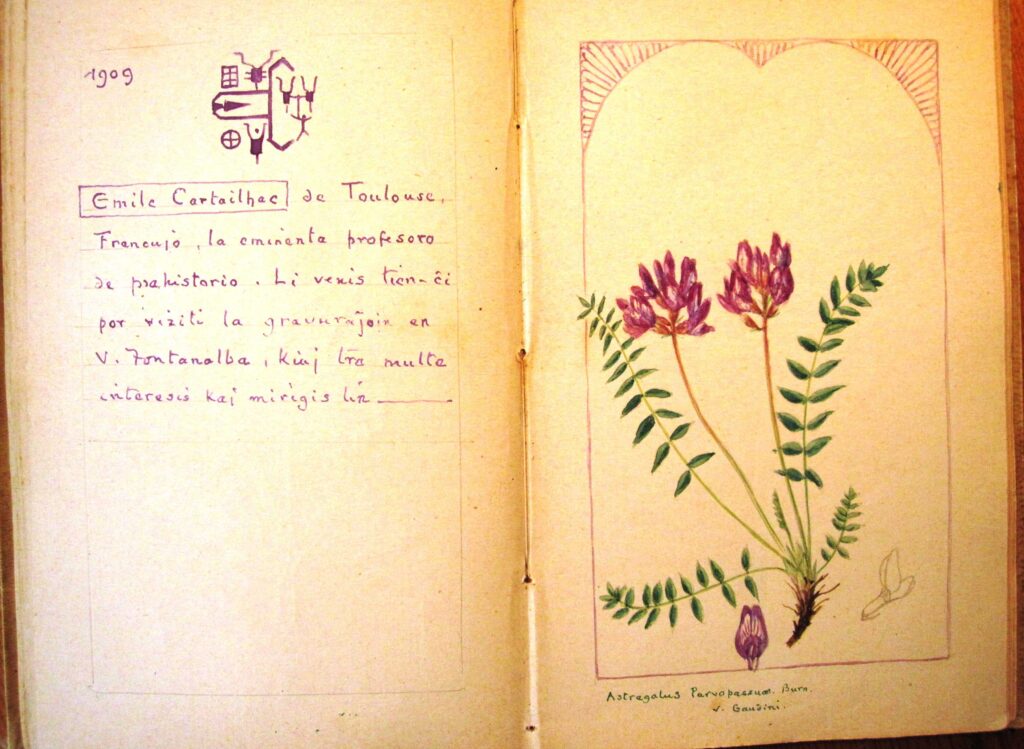 1909
Emile Cartailhac de Toulouse,
Francujo, la eminenta profesoro
de prahistorio. Li venis tien-ĉi
por viziti la gravuraĵojn en
V. Fontanalba, kiuj tre multe
interesis kaj mirigis lin
Astragalus Parvopassuae. Burn.
v. Gaudini.